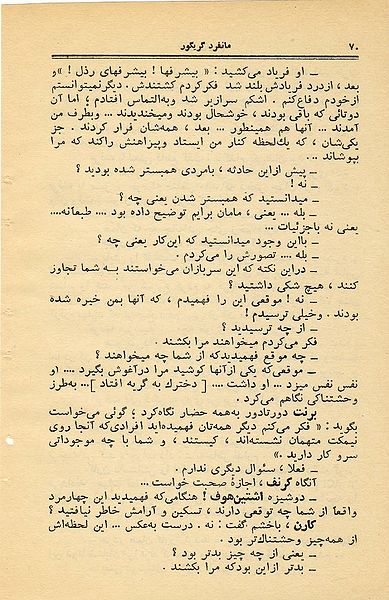 ۷۰ مانفرد گریگور
ــ او فریاد می‌کشید: « بیشرفها ! بیشرفهای رذل ! » و
بعد ، ازدرد فریادش بلند شد فکر کردم کشتندش. دیگر نمیتوانستم
ازخودم دفاع کنم . اشکم سرازیر شد وبه‌التماس افتادم ؛ اما آن
دوتائی که باقی بودند ، خوشحال بودند ومیخندیدند ... وبطرف من
آمدند ... آنها هم همینطور ... بعد ، همه‌شان فرار کردند . جز
یکی‌شان ، که یك‌لحظه کنار من ایستاد وپیراهنش راکند که مرا
بپوشاند ...
ــ پیش ازاین حادثه ، بامردی همبستر شده بودید ؟
ــ نه !
ــ میدانستید که همبستر شدن یعنی چه ؟
ــ بله ... یعنی ، مامان برایم توضیح داده بود .... طبعاًنه....
یعنی نه باجزئیات...
ــ بااین وجود میدانستید که این‌کار یعنی چه ؟
ــ بله .... تصورش را می‌کردم .
ــ دراین نکته که این سربازان می‌خواستند به شما تجاوز
کنند ، هیچ شکی داشتید ؟
ــ نه ! موقعی این را فهمیدم ، که آنها بمن خیره شده
بودند . وخیلی ترسیدم !
ــ از چه ترسیدید ؟
فکر می‌کردم میخواهند مرا بکشند .
ــ چه موقع فهمیدیدکه از شما چه میخواهند ؟
ــ موقعی‌که یکی ازآنها کوشید مرا درآغوش بگیرد .... او
نفس نفس میزد ... او داشت .... [ دخترك به گریه افتاد ]... به‌طرز
وحشتناکی نگاهم می‌کرد .
برنت دورتادور به‌همه حضار نگاه‌کرد ؛ گوئی می‌خواست
بگوید : « فکر می‌کنم دیگر همه‌تان فهمیده‌اید افرادی‌که آنجا روی
نیمکت متهمان نشسته‌اند ، کیستند ، و شما با چه موجوداتی
سرو کار دارید .»
ــ فعلا ، سئوال دیگری ندارم .
آنگاه گرنف ، اجازهٔ صحبت خواست ...
ــ دوشیزه اشتین‌هوف ! هنگامی‌که فهمیدید این چهارمرد
واقعاً از شما چه توقعی دارند ، تسکین و آرامش خاطر نیافتید ؟
کارن ، باخشم گفت : نه . درست به‌عکس ... این لحظه‌اش
از همه‌چیز وحشتناك‌تر بود .
ــ یعنی از چه چیز بدتر بود ؟
ــ بدتر ازاین بودکه مرا بکشند .